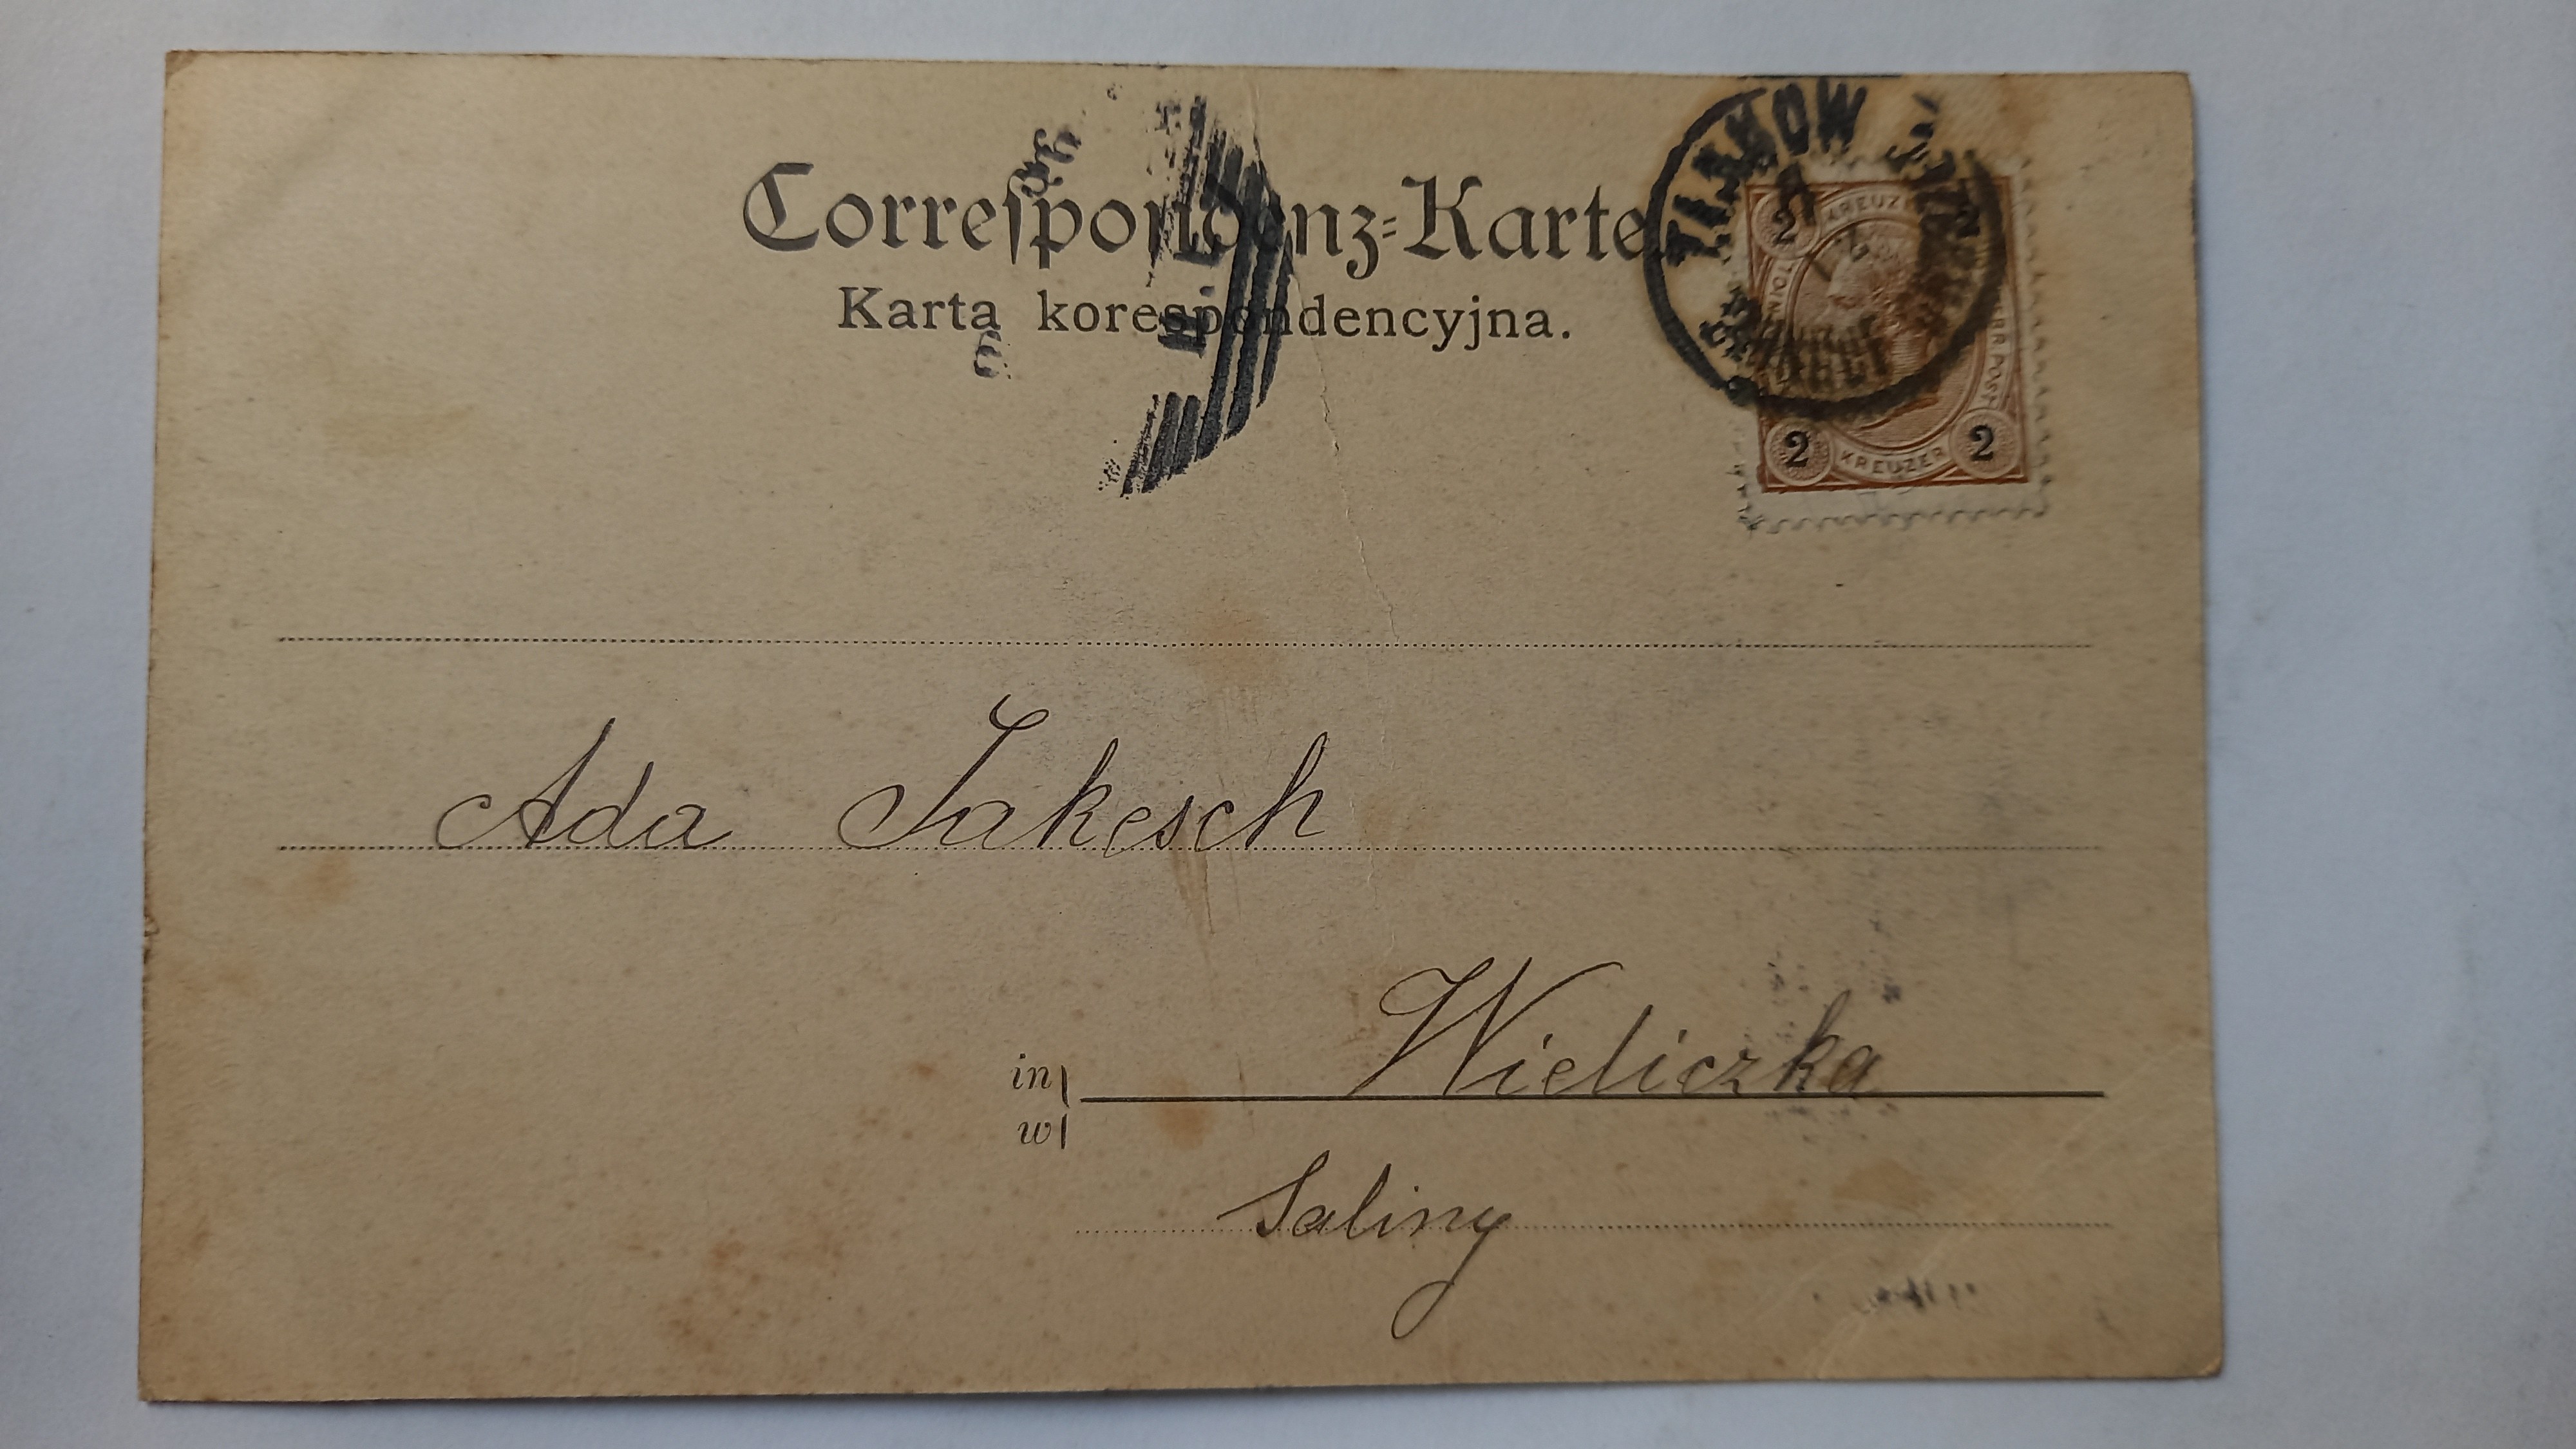 Correſpondenz=Karte
Karta korespondencyjna.
2 KREUZER 2
Ada Jakesch
in Wieliczka
w
Saliny